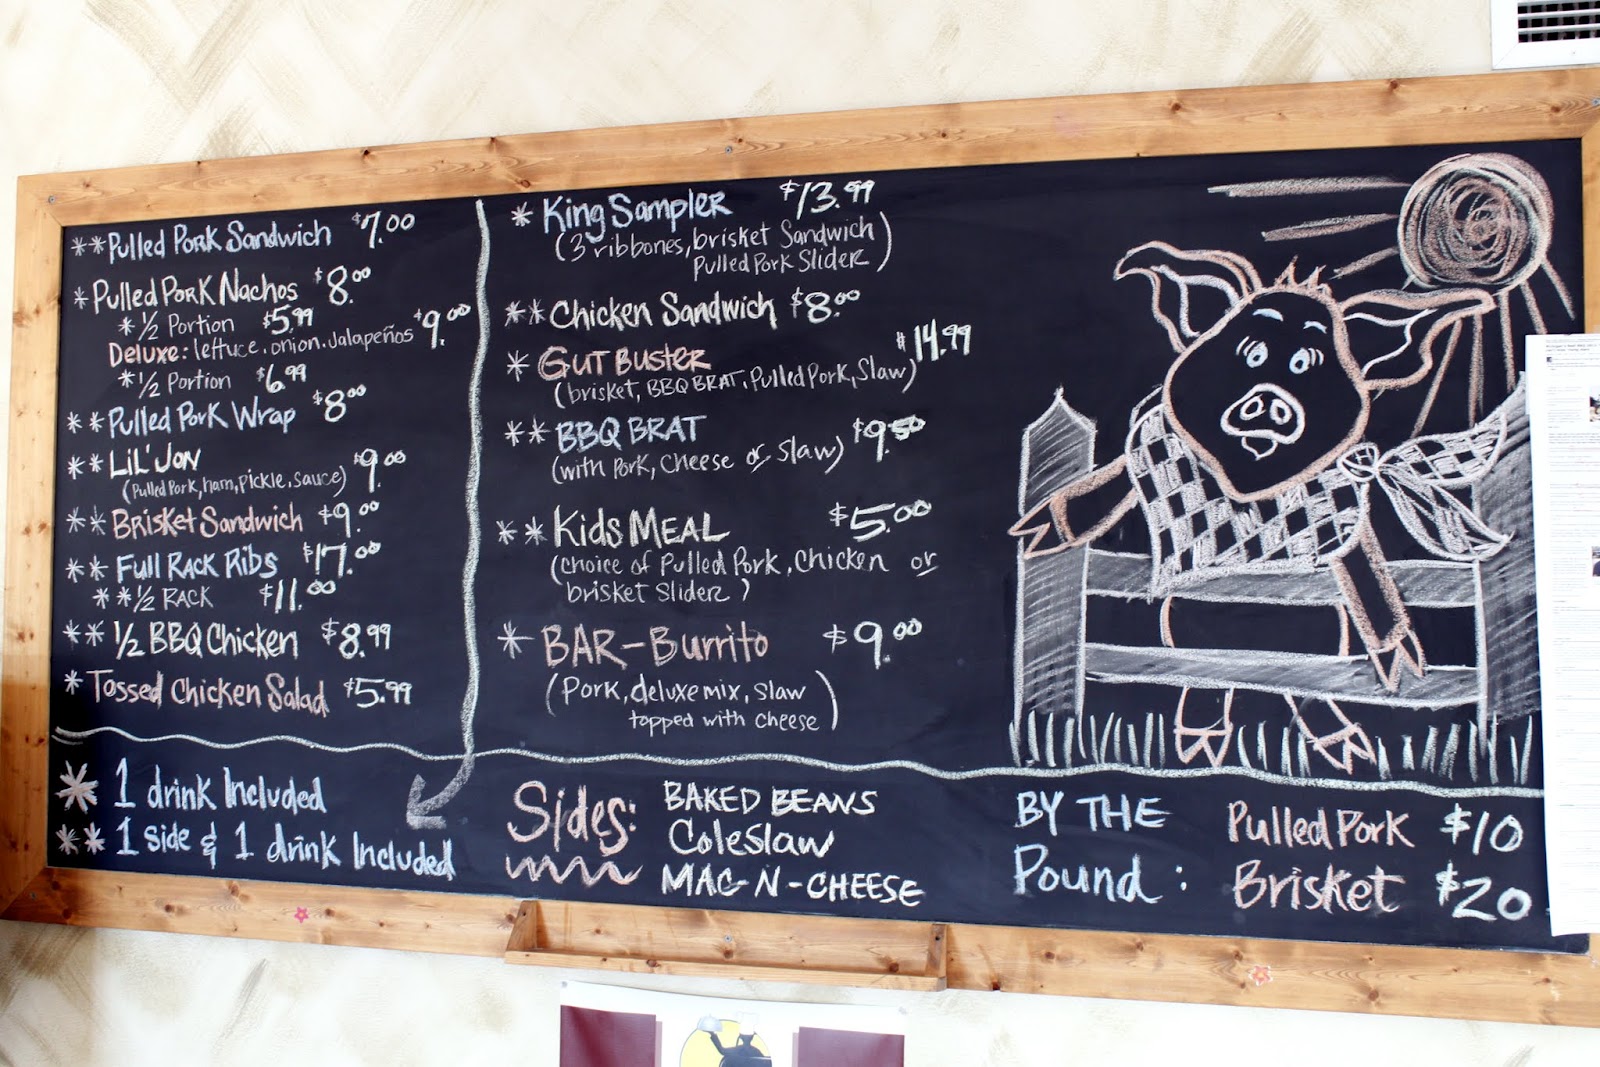 **Pulled Pork Sandwich $7.00
*Pulled Pork Nachos $8.00
*1/2 Portion $5.99
Deluxe: lettuce, onion, Jalapeños $9.00
*1/2 Portion $6.99
**Pulled Pork Wrap $8.00
**Lil' Jon $9.00
(Pulled Pork, ham, pickle, sauce)
**Brisket Sandwich $9.00
**Full Rack Ribs $17.00
**1/2 Rack $11.00
**1/2 BBQ Chicken $8.99
*Tossed Chicken Salad $5.99
*King Sampler $13.99
(3 ribbones, brisket Sandwich
Pulled Pork Slider)
**Chicken Sandwich $8.00
*Gut Buster $14.99
(brisket, BBQ BRAT, Pulled Pork, Slaw)
**BBQ BRAT $9.50
(with Pork, Cheese or Slaw)
**Kids Meal $5.00
(choice of Pulled Pork, Chicken or
brisket Slider)
*BAR-Burrito $9.00
(Pork, deluxe mix, Slaw
topped with cheese)
* 1 drink Included
** 1 side & 1 drink Included
Sides: BAKED BEANS
Coleslaw
MAC-N-CHEESE
BY THE Pound:
Pulled Pork $10
Brisket $20